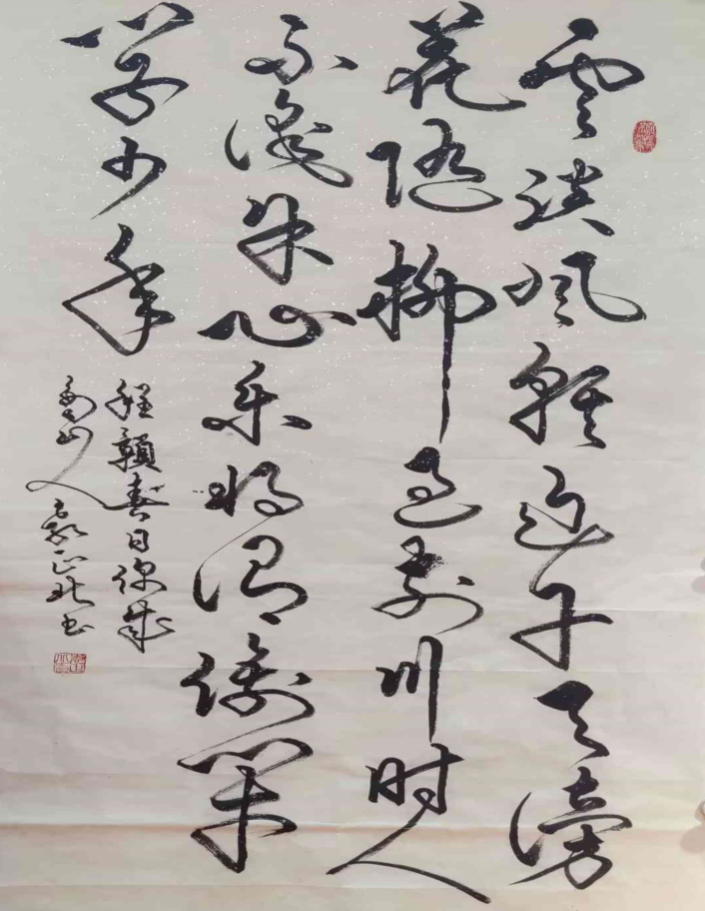 雲淡风轻近午天傍
花随柳过前川时人
不識余心乐将谓偷闲
学少年
程颢春日偶成
山人 正北书